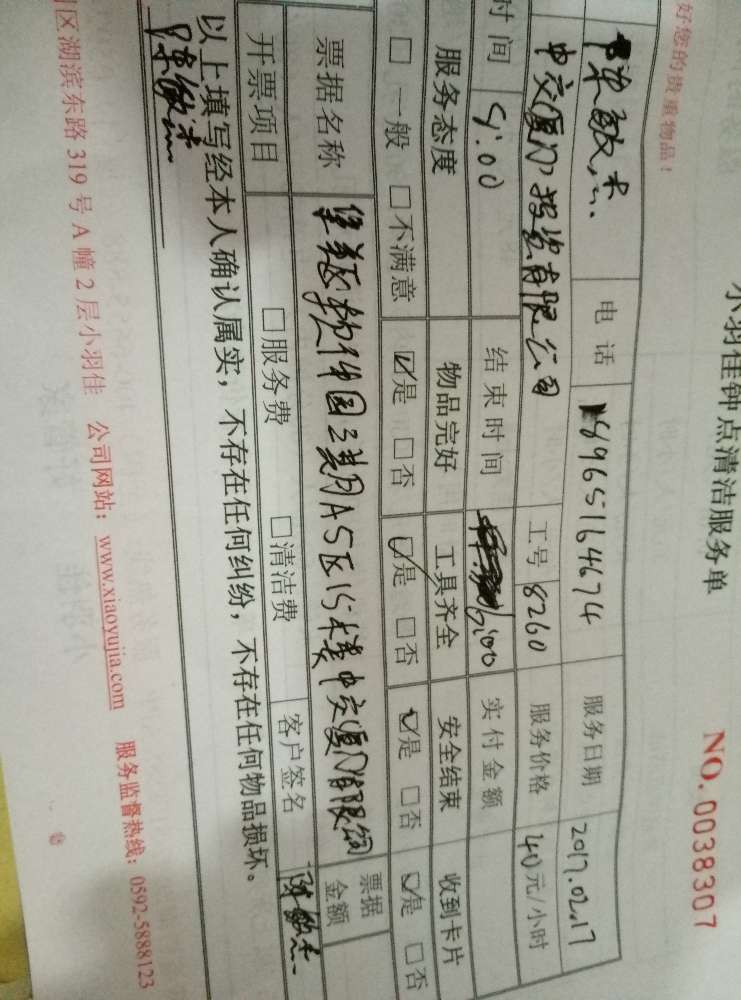 小羽佳钟点清洁服务单
NO.0038307
好您的贵重物品！
陈敏杰 电话 18965164674 服务日期 2017.02.17
中交厦门投资有限公司 工号 8260 服务价格 40元/小时
时间 9:00 结束时间 16:00 实付金额
服务态度 物品完好 工具齐全 安全结束 收到卡片
□一般 □不满意 ☑是 □否 ☑是 □否 ☑是 □否 ☑是 □否
票据名称 A5区15楼中交厦门有限公司 票据金额
开票项目 □服务费 □清洁费 客户签名 陈敏杰
以上填写经本人确认属实，不存在任何纠纷，不存在任何物品损坏。
陈敏杰
区湖滨东路319号A幢2层小羽佳 公司网站：www.xiaoyujia.com 服务监督热线：0592-5888123